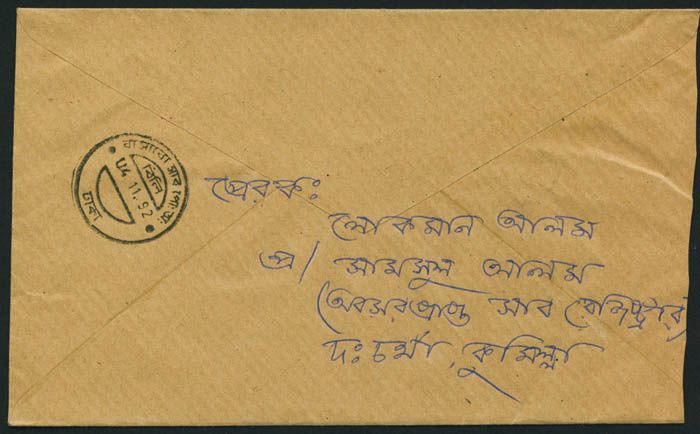 বাসাবো সাব পো: অ:
বিলি
04 11.92
ঢাকা
প্রেরক:
লোকমান আলম
প্র/ সামসুল আলম
(অবসরপ্রাপ্ত সাব রেজিষ্ট্রার)
দ: চর্থা, কুমিল্লা